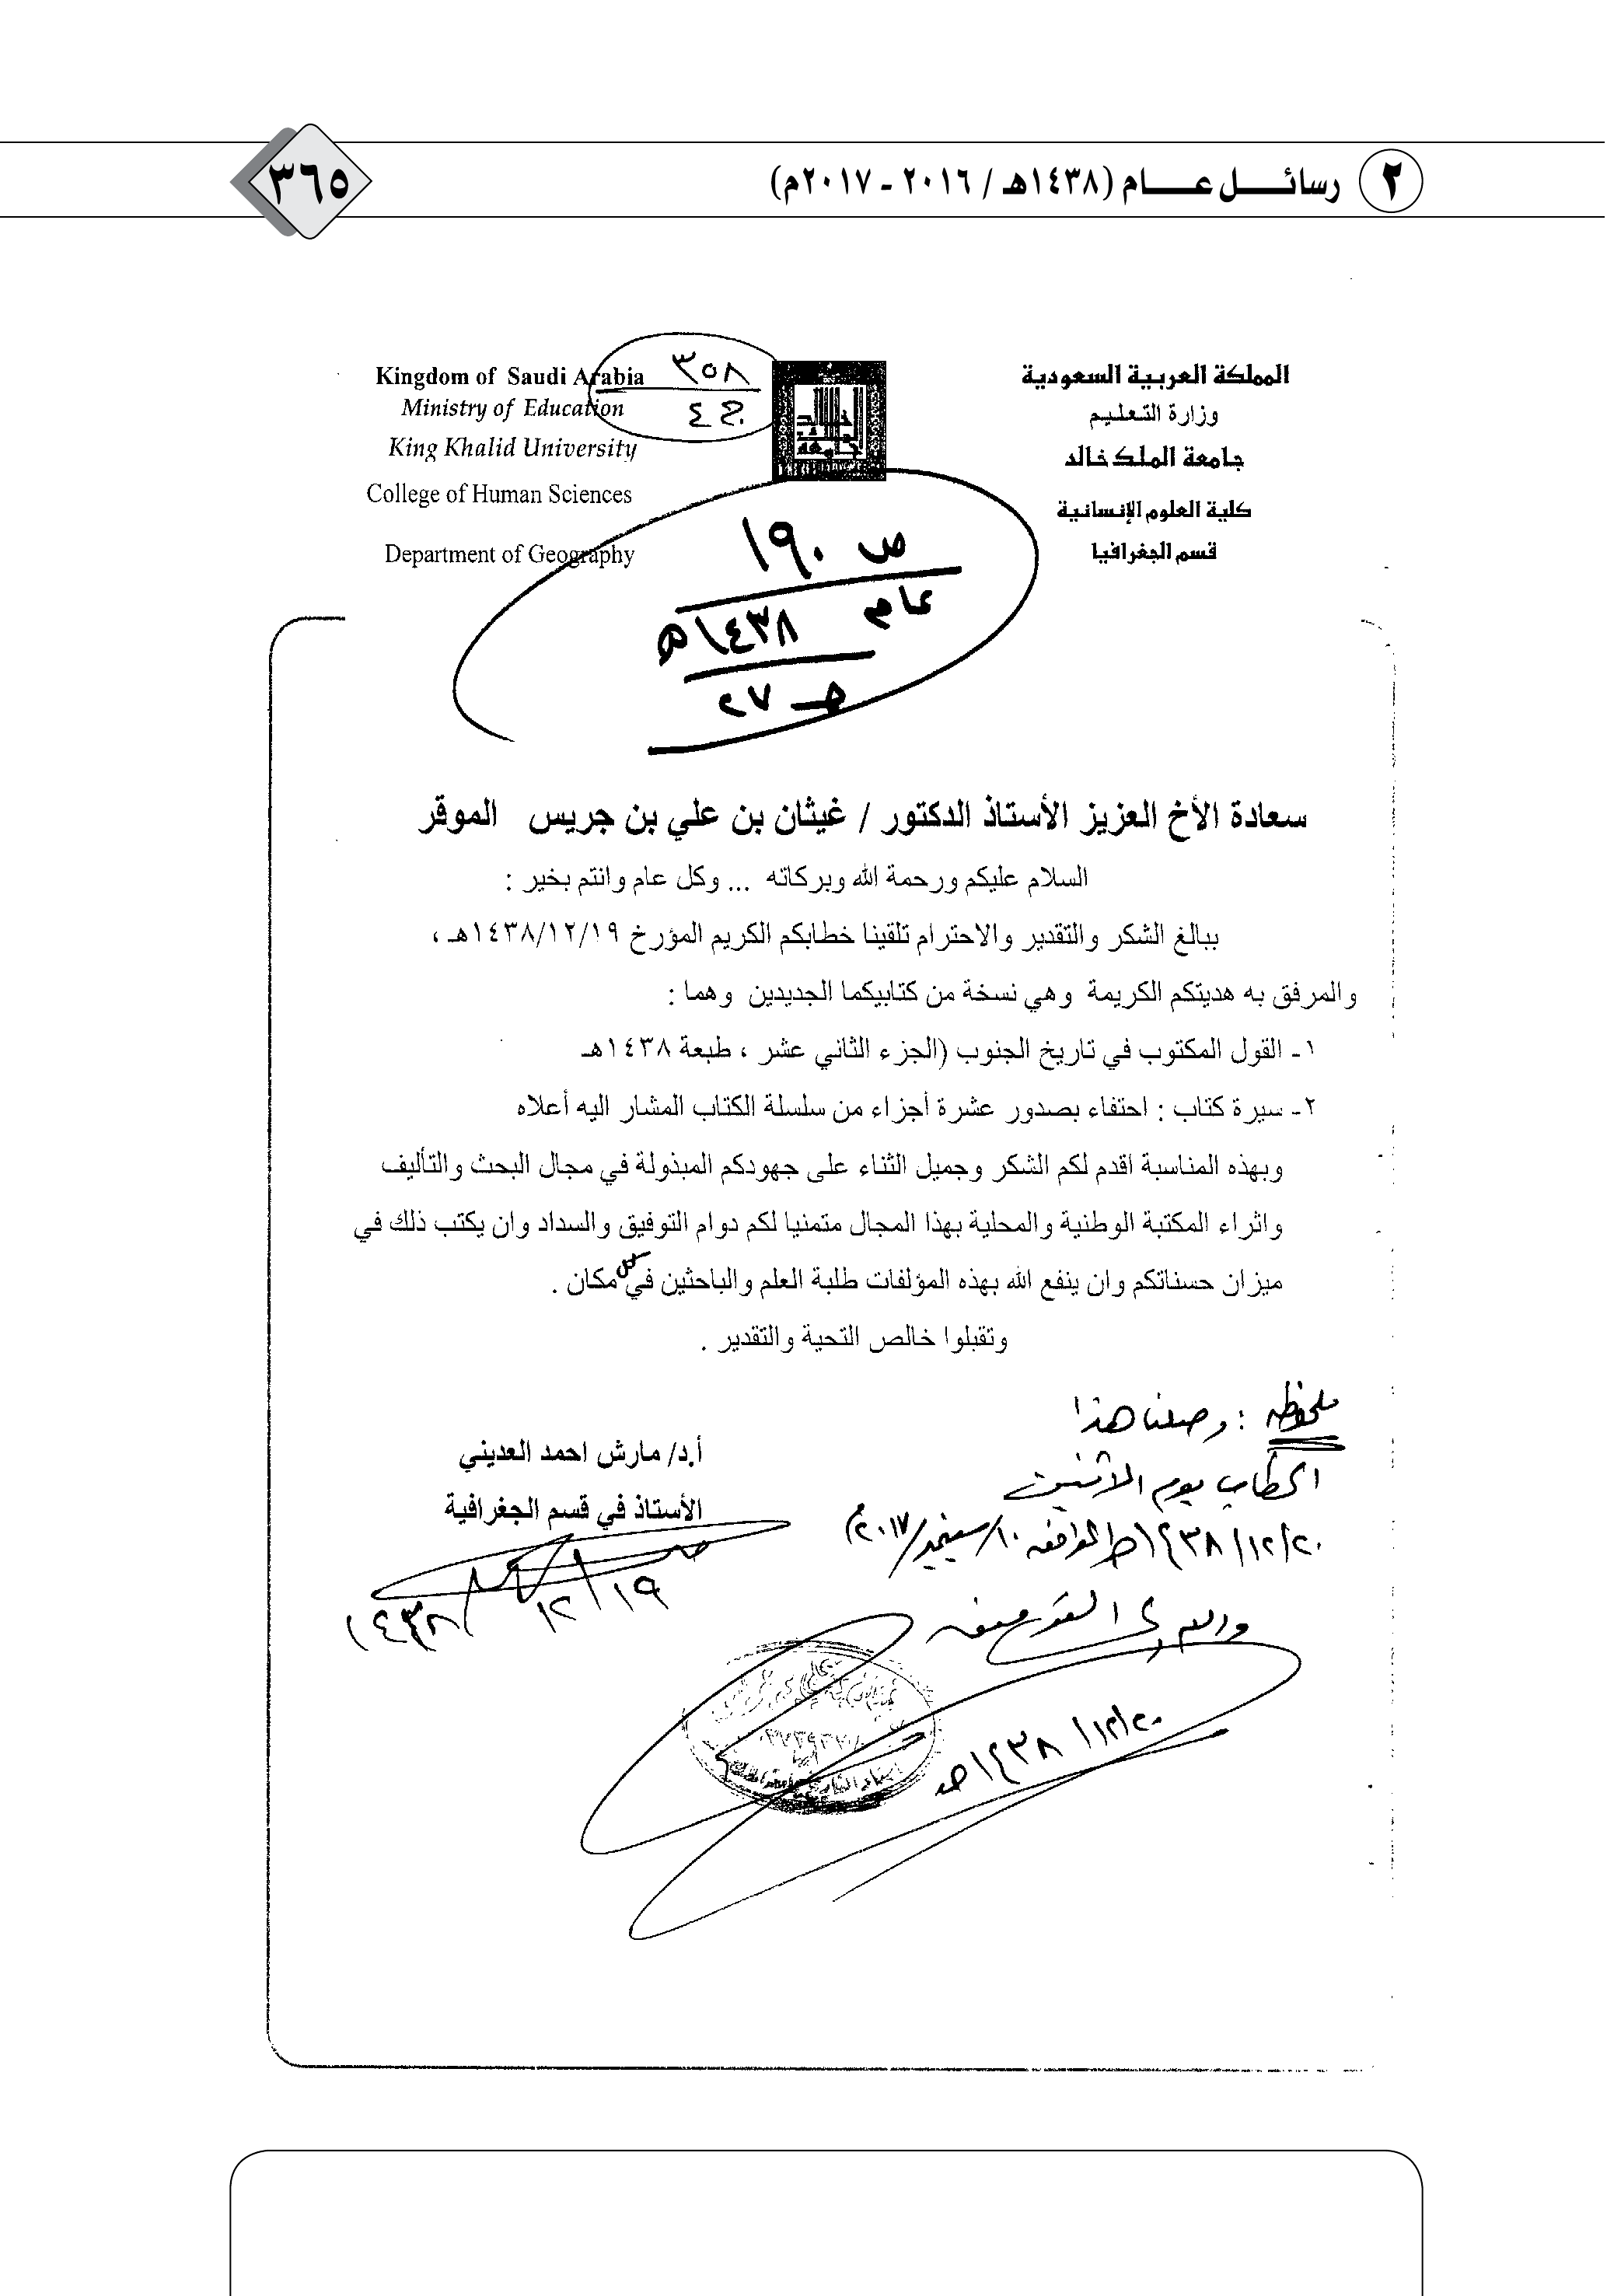 ٢ رسائل عام (١٤٣٨هـ / ٢٠١٦ - ٢٠١٧م)
٣٦٥
المملكة العربية السعودية
وزارة التعليم
جامعة الملك خالد
كلية العلوم الإنسانية
قسم الجغرافيا
جامعة الملك خالد
Kingdom of Saudi Arabia
Ministry of Education
King Khalid University
College of Human Sciences
Department of Geography
٣٥٨
ص ١٩٠
عام ١٤٣٨هـ
٢٧
سعادة الأخ العزيز الأستاذ الدكتور / غيثان بن علي بن جريس الموقر
السلام عليكم ورحمة الله وبركاته ... وكل عام وانتم بخير :
ببالغ الشكر والتقدير والاحترام تلقينا خطابكم الكريم المؤرخ ١٤٣٨/١٢/١٩هـ ،
والمرفق به هديتكم الكريمة وهي نسخة من كتابيكما الجديدين وهما :
١- القول المكتوب في تاريخ الجنوب (الجزء الثاني عشر ، طبعة ١٤٣٨هـ
٢- سيرة كتاب : احتفاء بصدور عشرة أجزاء من سلسلة الكتاب المشار اليه أعلاه
وبهذه المناسبة اقدم لكم الشكر وجميل الثناء على جهودكم المبذولة في مجال البحث والتأليف
واثراء المكتبة الوطنية والمحلية بهذا المجال متمنيا لكم دوام التوفيق والسداد وان يكتب ذلك في
ميزان حسناتكم وان ينفع الله بهذه المؤلفات طلبة العلم والباحثين في كل مكان .
وتقبلوا خالص التحية والتقدير .
أ.د/ مارش احمد العديني
الأستاذ في قسم الجغرافية
١٤٣٨/١٢/١٩
ملحوظه : وصلنا هذا
الخطاب يوم الاثنين
١٤٣٨/١٢/٢٠هـ الموافق ١٠/سبتمبر/٢٠١٧م)
والله ولي التوفيق
١٤٣٨/١٢/٢٠هـ